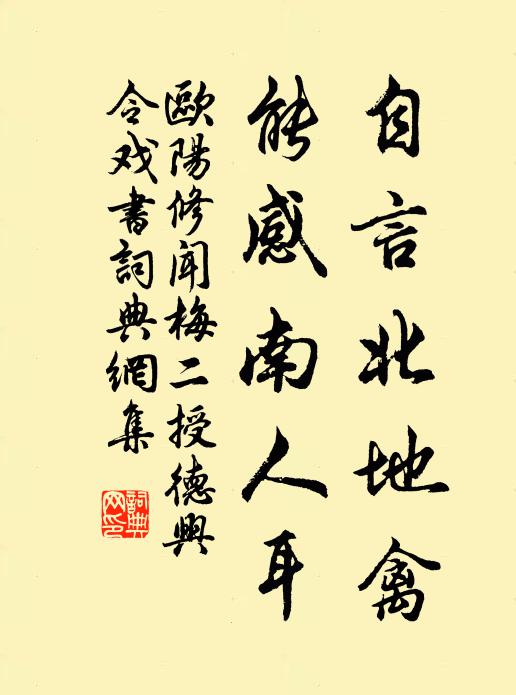 自言北地禽
能感南人耳
歐陽修聞梅二授德興
令戏書詞典網集
詞典
网印